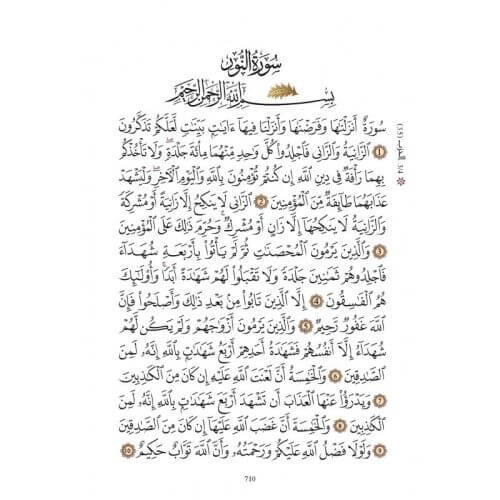 سُورَةُ النُّورِ
بِسْمِ اللَّهِ الرَّحْمَٰنِ الرَّحِيمِ
سُورَةٌ أَنزَلْنَٰهَا وَفَرَضْنَٰهَا وَأَنزَلْنَا فِيهَآ ءَايَٰتٍۭ بَيِّنَٰتٍ لَّعَلَّكُمْ تَذَكَّرُونَ
١ ٱلزَّانِيَةُ وَٱلزَّانِى فَٱجْلِدُوا۟ كُلَّ وَٰحِدٍ مِّنْهُمَا مِا۟ئَةَ جَلْدَةٍ ۖ وَلَا تَأْخُذْكُم
بِهِمَا رَأْفَةٌ فِى دِينِ ٱللَّهِ إِن كُنتُمْ تُؤْمِنُونَ بِٱللَّهِ وَٱلْيَوْمِ ٱلْءَاخِرِ ۖ وَلْيَشْهَدْ
عَذَابَهُمَا طَآئِفَةٌ مِّنَ ٱلْمُؤْمِنِينَ ٢ ٱلزَّانِى لَا يَنكِحُ إِلَّا زَانِيَةً أَوْ مُشْرِكَةً
وَٱلزَّانِيَةُ لَا يَنكِحُهَآ إِلَّا زَانٍ أَوْ مُشْرِكٌ ۚ وَحُرِّمَ ذَٰلِكَ عَلَى ٱلْمُؤْمِنِينَ
٣ وَٱلَّذِينَ يَرْمُونَ ٱلْمُحْصَنَٰتِ ثُمَّ لَمْ يَأْتُوا۟ بِأَرْبَعَةِ شُهَدَآءَ
فَٱجْلِدُوهُمْ ثَمَٰنِينَ جَلْدَةً وَلَا تَقْبَلُوا۟ لَهُمْ شَهَٰدَةً أَبَدًا ۚ وَأُو۟لَٰٓئِكَ
هُمُ ٱلْفَٰسِقُونَ ٤ إِلَّا ٱلَّذِينَ تَابُوا۟ مِنۢ بَعْدِ ذَٰلِكَ وَأَصْلَحُوا۟ فَإِنَّ
ٱللَّهَ غَفُورٌ رَّحِيمٌ ٥ وَٱلَّذِينَ يَرْمُونَ أَزْوَٰجَهُمْ وَلَمْ يَكُن لَّهُمْ
شُهَدَآءُ إِلَّآ أَنفُسُهُمْ فَشَهَٰدَةُ أَحَدِهِمْ أَرْبَعُ شَهَٰدَٰتٍۭ بِٱللَّهِ ۙ إِنَّهُۥ لَمِنَ
ٱلصَّٰدِقِينَ ٦ وَٱلْخَٰمِسَةُ أَنَّ لَعْنَتَ ٱللَّهِ عَلَيْهِ إِن كَانَ مِنَ ٱلْكَٰذِبِينَ
٧ وَيَدْرَؤُا۟ عَنْهَا ٱلْعَذَابَ أَن تَشْهَدَ أَرْبَعَ شَهَٰدَٰتٍۭ بِٱللَّهِ ۙ إِنَّهُۥ لَمِنَ
ٱلْكَٰذِبِينَ ٨ وَٱلْخَٰمِسَةَ أَنَّ غَضَبَ ٱللَّهِ عَلَيْهَآ إِن كَانَ مِنَ ٱلصَّٰدِقِينَ
٩ وَلَوْلَا فَضْلُ ٱللَّهِ عَلَيْكُمْ وَرَحْمَتُهُۥ وَأَنَّ ٱللَّهَ تَوَّابٌ حَكِيمٌ ١٠
710